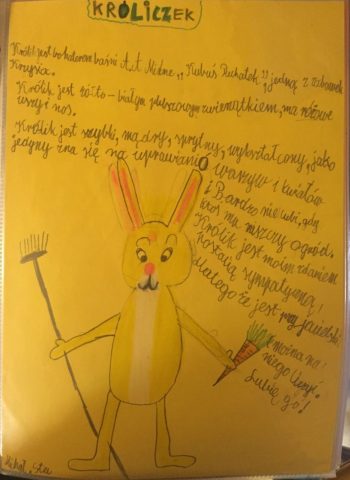 KRÓLICZEK
Królik jest bohaterem baśni A.A Milne „Kubuś Puchatek", jedną z zabawek
Krzysia.
Królik jest żółto – białym pluszowym zwierzątkiem, ma różowe
uszy i nos.
Królik jest szybki, mądry, sprytny, wykształcony, jako
jedyny zna się na uprawianiu warzyw i kwiatów
i Bardzo nie lubi, gdy
ktoś mu niszczy ogródek.
Królik jest moim zdaniem
postacią sympatyczną!
dlatego że jest przyjacielski
i można na
niego liczyć.
Lubię go!